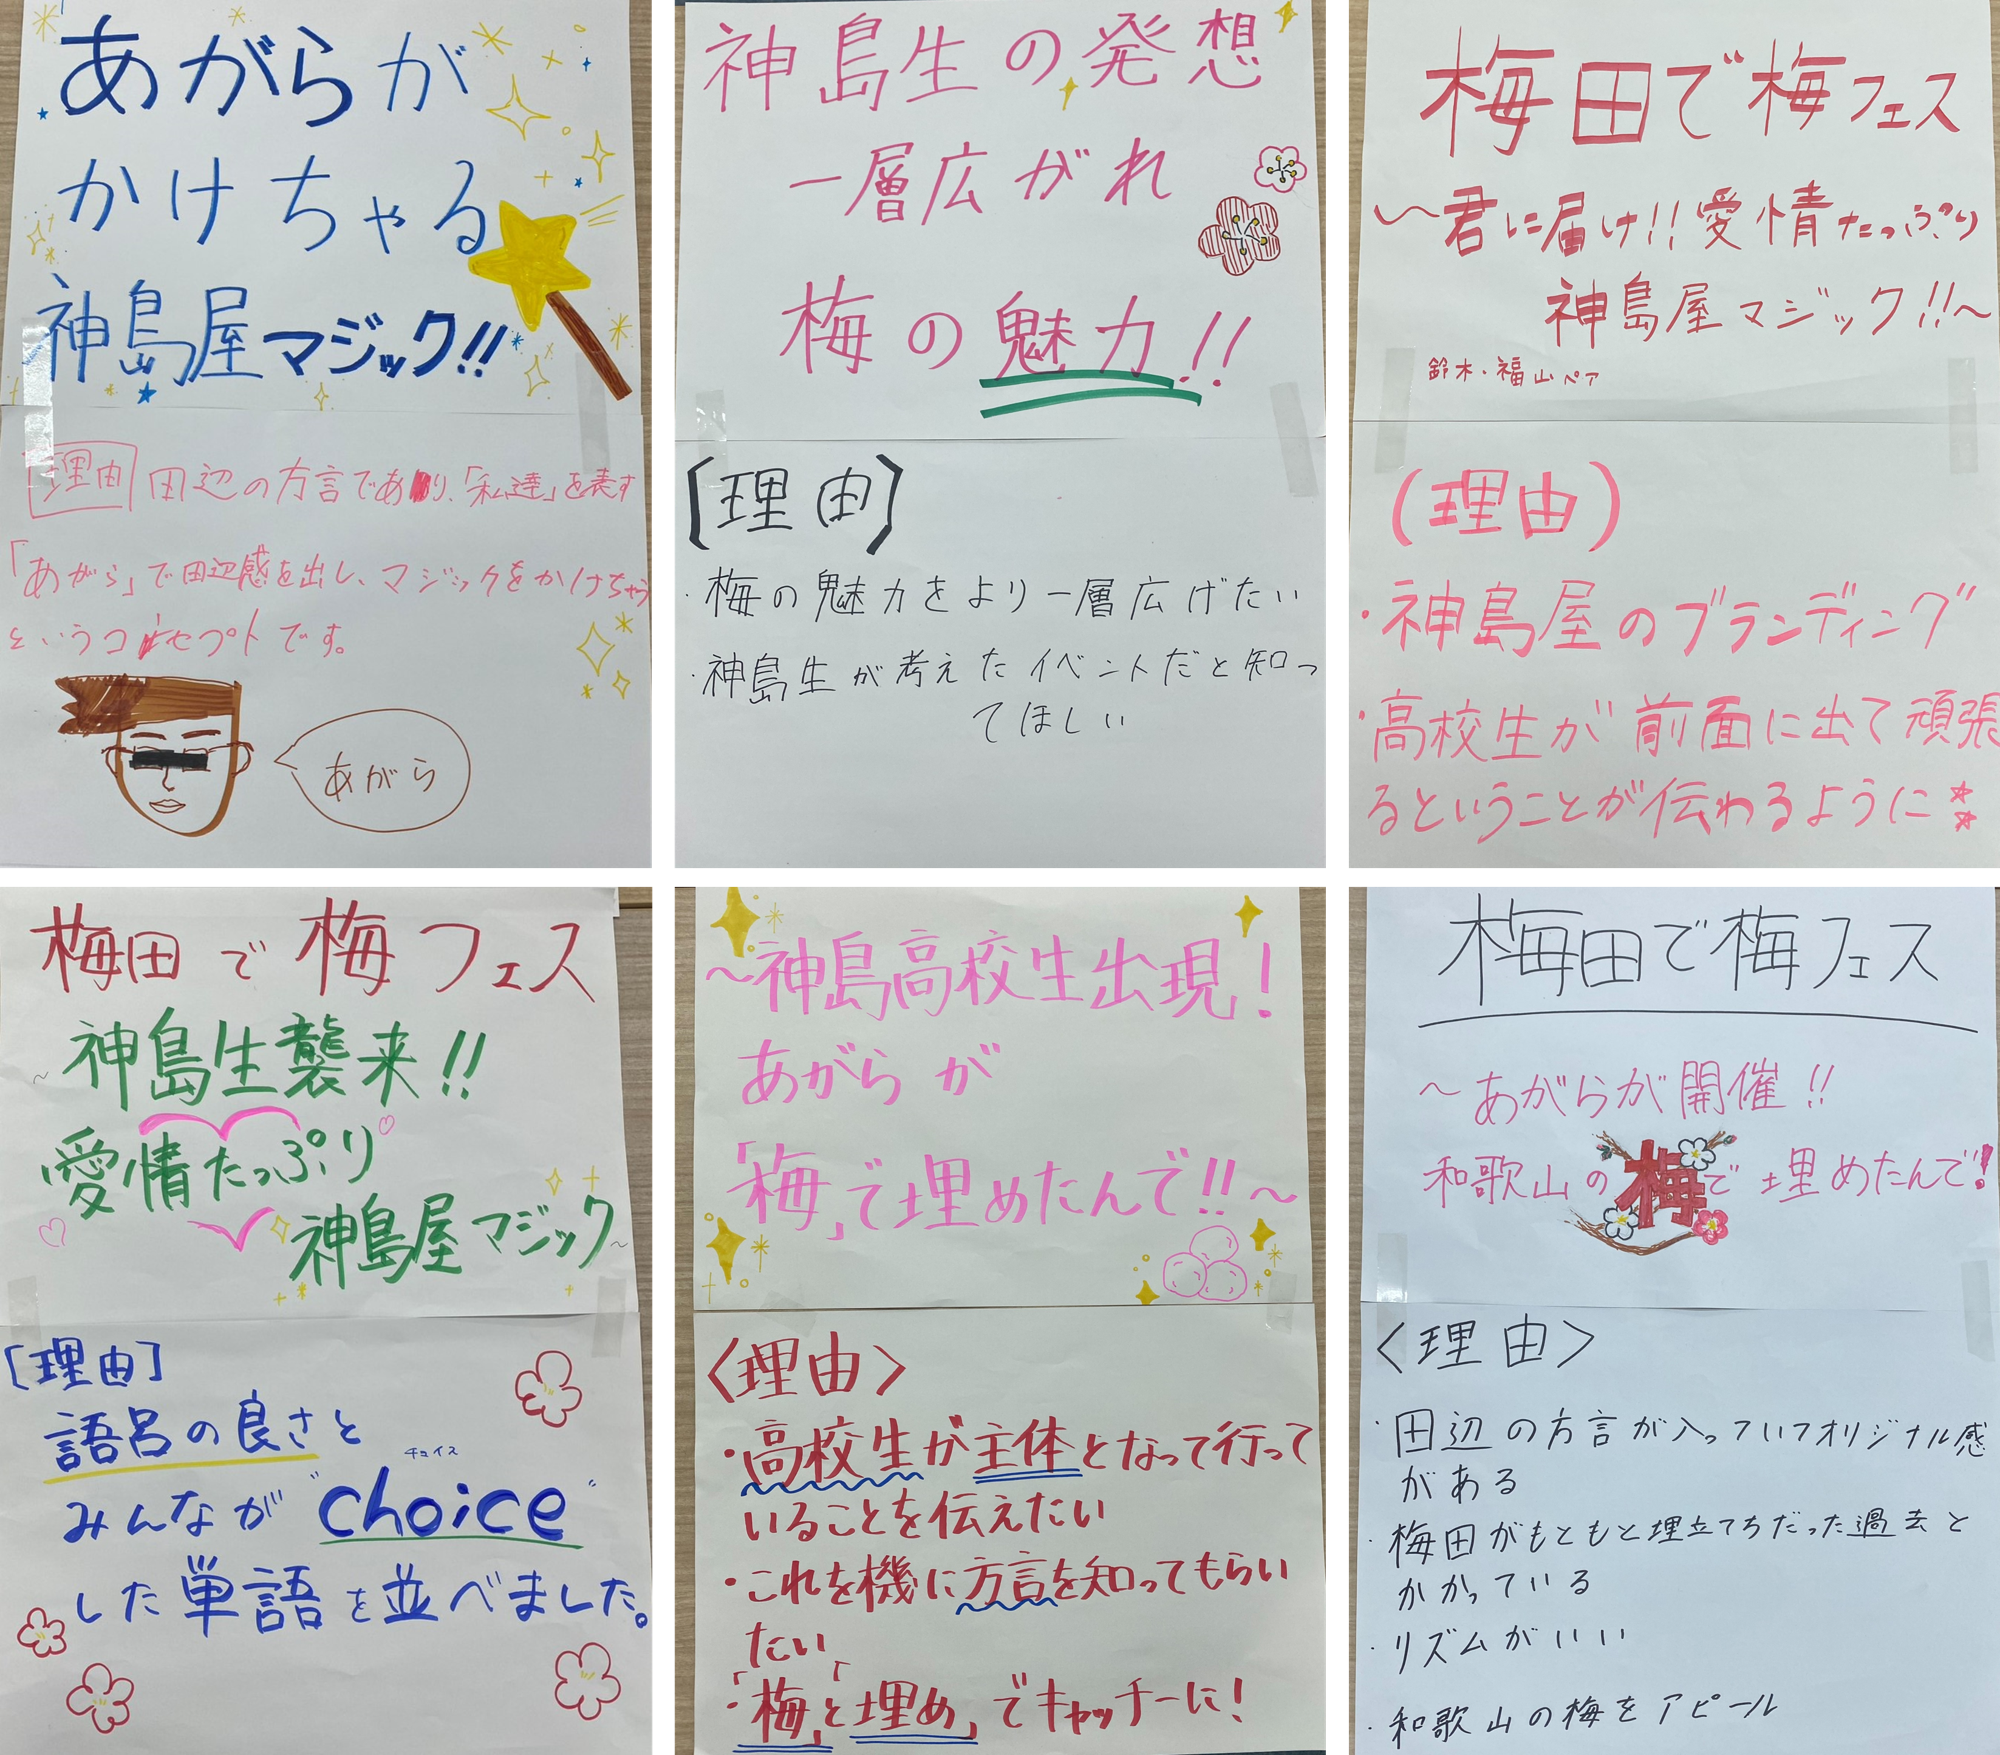 あがらが
かけちゃる
神島屋マジック!!
理由 田辺の方言であり、「私達」を表す
「あがら」で田辺感を出し、マジックをかけちゃう
というコンセプトです。
あがら
神島生の発想
一層広がれ
梅の魅力!!
[理由]
・梅の魅力をより一層広げたい
・神島生が考えたイベントだと知っ
てほしい
梅田で梅フェス
〜君に届け!!愛情たっぷり
神島屋マジック!!〜
鈴木・福山ペア
(理由)
・神島屋のブランディング
・高校生が前面に出て頑張
るということが伝わるように
梅田で梅フェス
〜神島生襲来!!
愛情たっぷり
神島屋マジック〜
[理由]
語呂の良さと
チョイス
みんなが"choice"
した単語を並べました。
〜神島高校生出現!
あがらが
「梅」で埋めたんで!!〜
〈理由〉
・高校生が主体となって行って
いることを伝えたい
・これを機に方言を知ってもらい
たい
・「梅」と「埋め」でキャッチーに!
梅田で梅フェス
〜あがらが開催!!
和歌山の梅で埋めたんで!
〈理由〉
・田辺の方言が入っていてオリジナル感
がある
・梅田がもともと埋立てちだった過去と
かかっている
・リズムがいい
・和歌山の梅をアピール